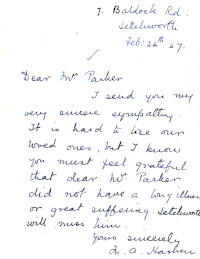 7. Baldock Rd.
Letchworth.
Feb: 24th 47.
Dear Mrs Parker
I send you my
very sincere sympathy.
It is hard to lose our
loved ones, but I know
you must feel grateful
that dear Mr. Parker
did not have a long illness
or great suffering. Letchworth
will miss him.
Yours sincerely
A. Harken